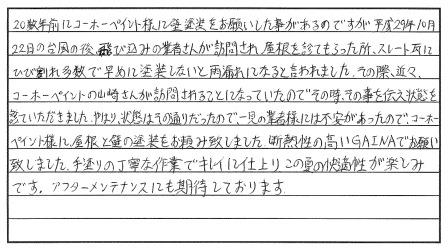 20数年前にコーホーペイント様に壁塗装をお願いした事があるのですが平成29年10月
22日の台風の後、飛び込みの業者さんが訪問され、屋根を診てもらった所、スレート瓦に
ひび割れ多数で早めに塗装しないと雨漏れになると言われました。その際、近々、
コーホーペイントの山崎さんが訪問されることになっていたのでその時、その事を伝え状態を
診ていただきました。やはり、状態はその通りだったので、一見の業者様には不安があったので、コーホー
ペイント様に、屋根と壁の塗装をお頼み致しました。断熱性の高いGAINAでお願い
致しました。手塗りの丁寧な作業でキレイに仕上りこの夏の快適性が楽しみ
です。アフターメンテナンスにも期待しております。